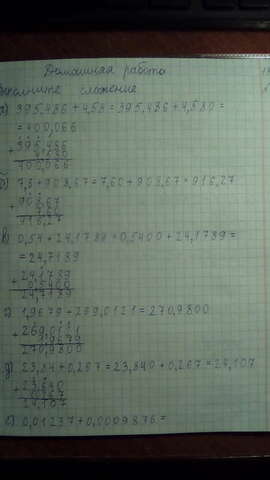 Домашняя работа
Выполните сложение
а) 395,486 + 4,58 = 395,486 + 4,580 =
= 400,066
+ 395,486
4,580
400,066
б) 7,6 + 908,67 = 7,60 + 908,67 = 916,27
+ 908,67
916,27
в) 0,54 + 24,1789 = 0,5400 + 24,1789 =
= 24,7189
+ 24,1789
0,5400
24,7189
г) 1,9679 + 269,0121 = 270,9800
+ 269,0121
1,9679
270,9800
д) 23,84 + 0,267 = 23,840 + 0,267 = 24,107
+ 23,840
0,267
24,107
е) 0,01237 + 0,0009876 =